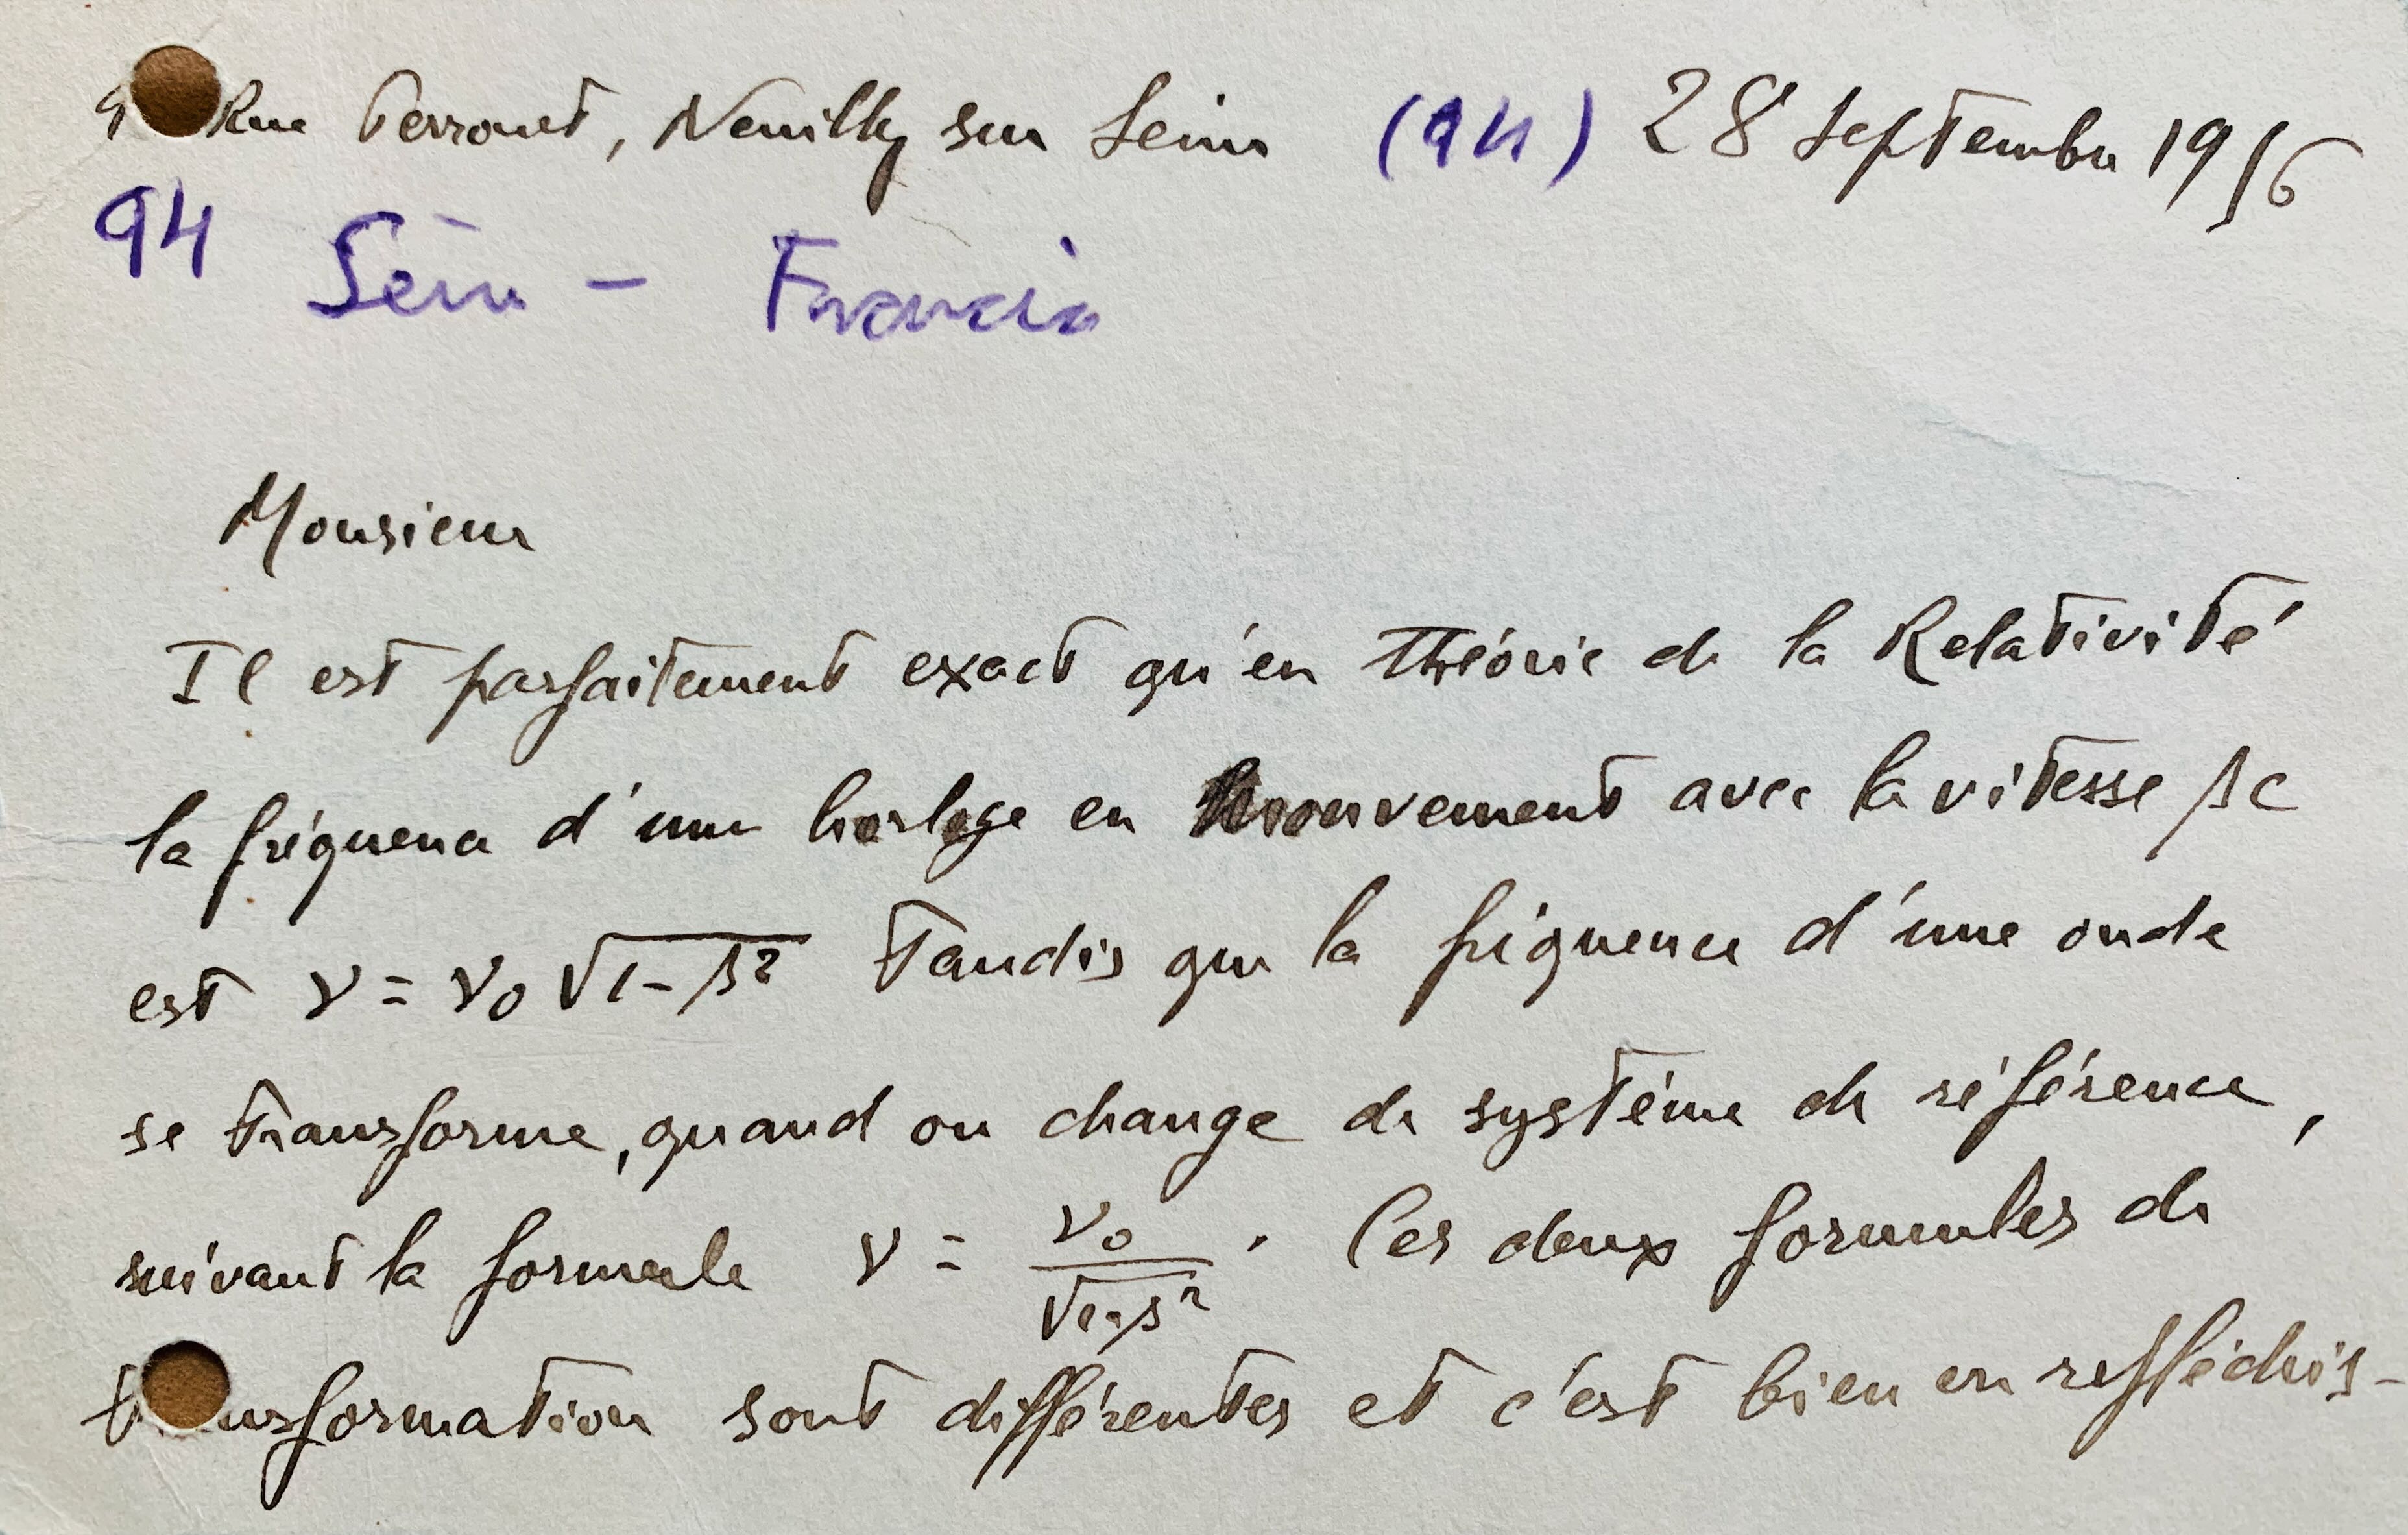 Rue Perronet, Neuilly sur Seine (94) 28 Septembre 1956
94 Seine - Francia
Monsieur
Il est parfaitement exact qu'en Théorie de la Relativité
la fréquence d'une horloge en mouvement avec la vitesse βc
est ν = ν₀ √1-β² tandis que la fréquence d'une onde
se transforme, quand on change de système de référence,
suivant la formule ν = ν₀/√1-β² . Ces deux formules de
transformation sont différentes et c'est bien en refléchis-